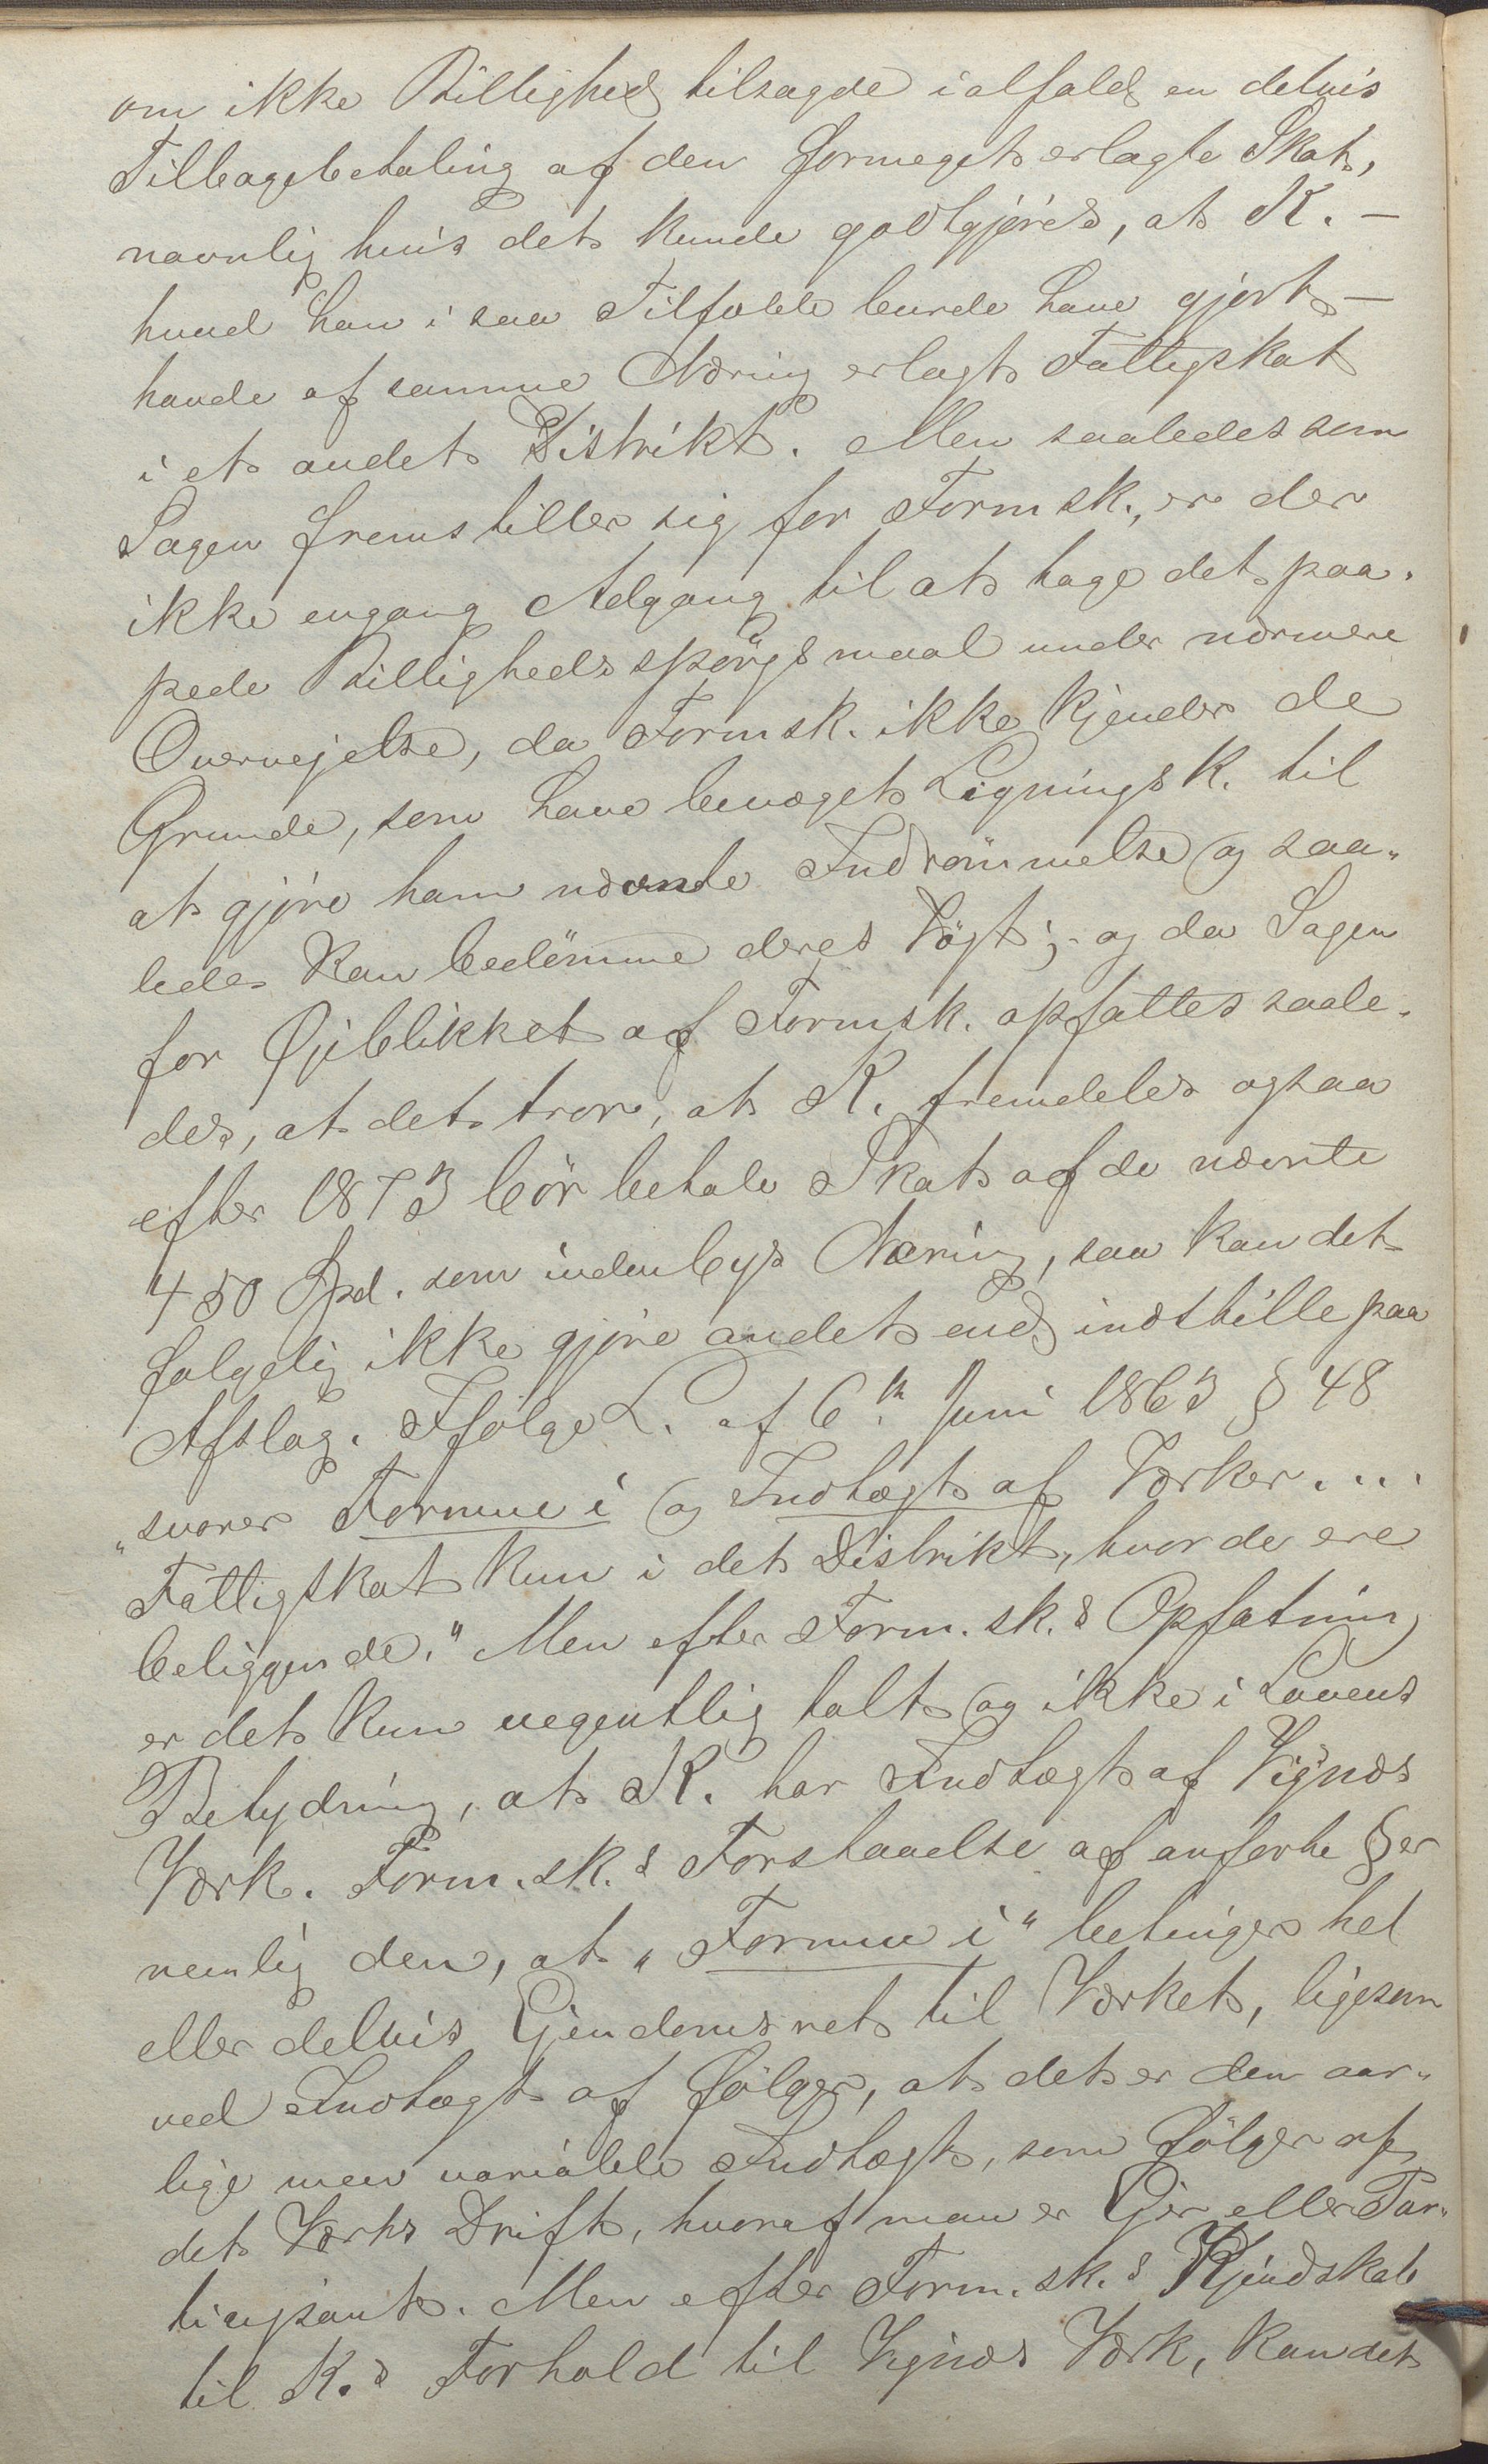 om ikke Billighed tilsagde ialfald en delvis
Tilbagebetaling af den formeget erlagte Skat,
navnlig hvis det kunde godtgjøres, at K. –
hvad han i saa Tilfælde burde have gjort –
havde af samme Næring erlagt Fattigskat
i et andet Distrikt. Men saaledes som
Sagen fremstiller sig for Formsk., er der
ikke engang Adgang til at tage det paa-
pede Billighedsspörgsmaal under nærmere
Overvejelse, da Formsk. ikke kjender de
Grunde, som have bevæget Ligningsk. til
at gjøre ham nævnte Indrömmelse og saa-
ledes kan bedömme deres Vægt; og da Sagen
for Øjeblikket af Formsk. opfattes saale-
des, at det tror, at K. fremdeles ogsaa
efter 1873 bör betale Skat af de nævnte
450 Spd. som indenbys Næring, saa kan det
følgelig ikke gjøre andet end indstille paa
Afslag. Ifølge L. af 6te Juni 1863 § 48
„svares Formue i og Indtægt af Værker....
Fattigskat kun i det Distrikt, hvor de ere
beliggende." Men efter Form.sk.s Opfatning
er det kun uegentlig talt og ikke i Lovens
Betydning, at K. har Indtægt af Vigsnæs
Værk. Form.sk.s Forstaaelse af anførte § er
nemlig den, at „Formue i" betinger hel
eller delvis Ejendomsret til Værket, ligesom
ved Indtægt af følger, at det er den aar-
lige men variable Indtægt, som følger af
det Værks Drift, hvoraf man er Ejer eller Par-
ticipant. Men efter Form.sk.s Kjendskab
til K.s Forhold til Vigsnæs Værk, kan det